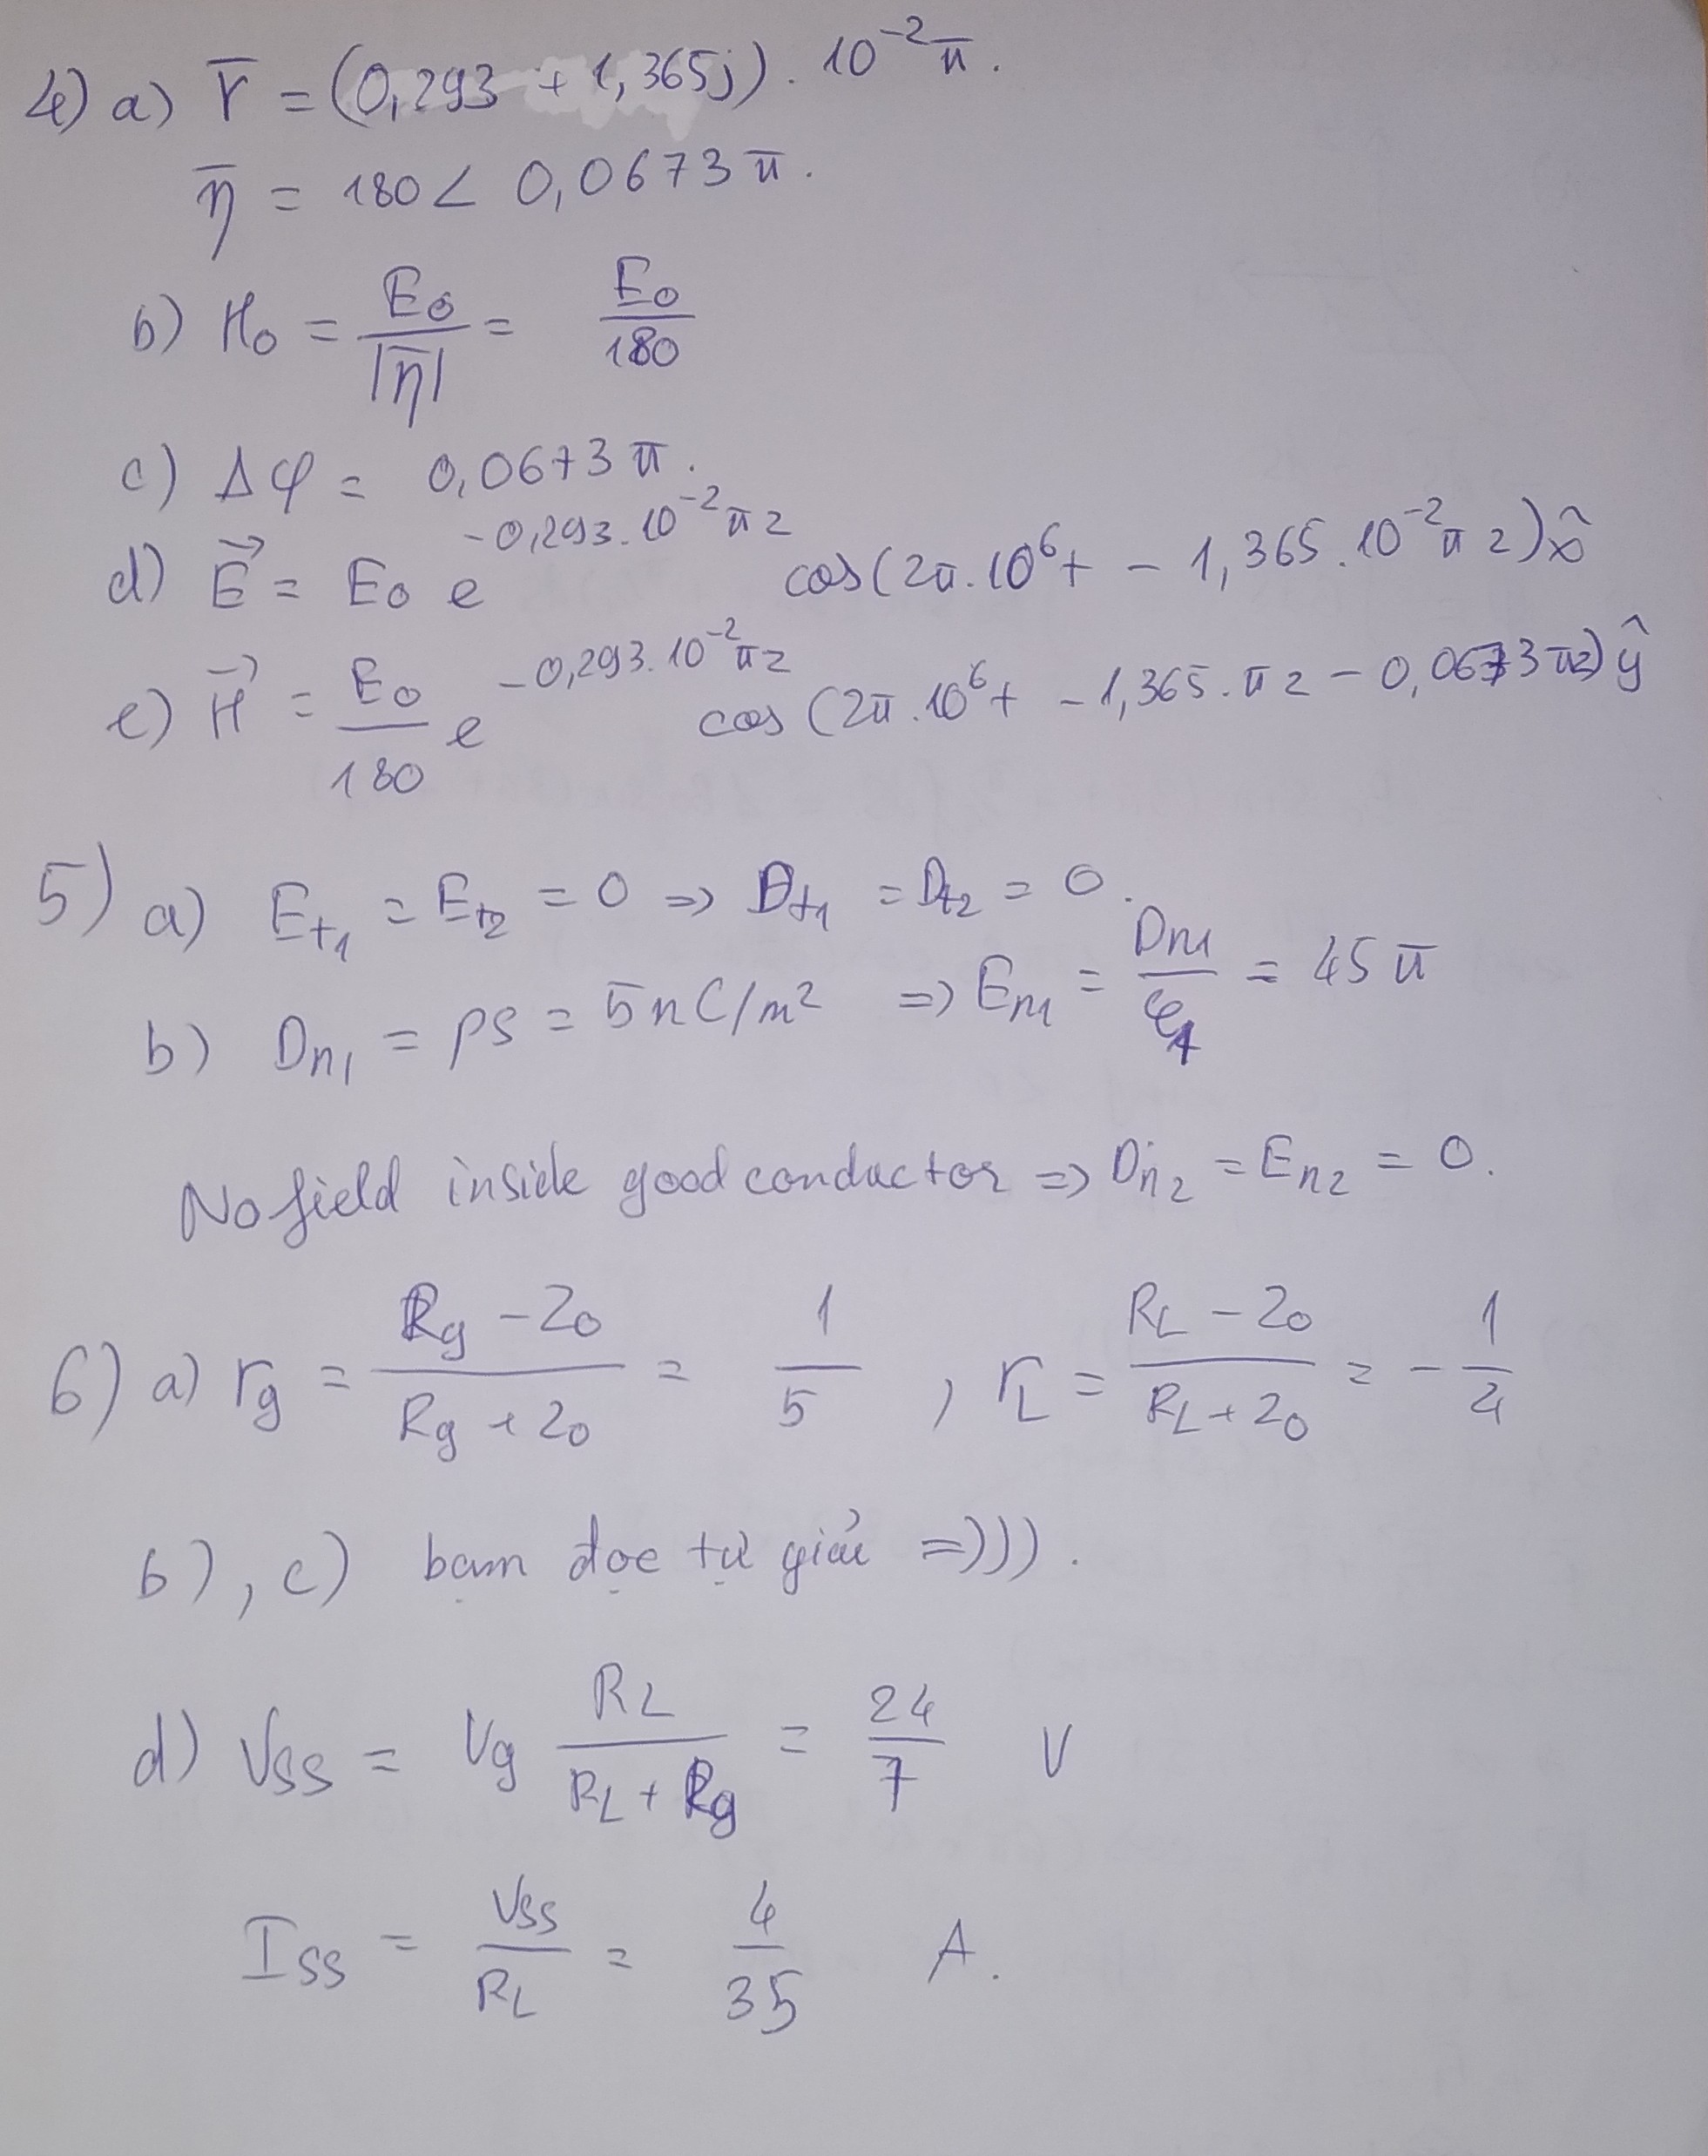 4) a) γ̅ = (0,293 + 1,365j) . 10⁻² π.
η̅ = 180 ∠ 0,0673 π.
b) H₀ = E₀ / |η̅| = E₀ / 180
c) Δφ = 0,0673 π.
d) E⃗ = E₀ e^(-0,293.10⁻² π z) cos(2π.10⁶t - 1,365.10⁻² π z) x̂
e) H⃗ = E₀ / 180 e^(-0,293.10⁻² π z) cos(2π.10⁶t - 1,365.π z - 0,0673 πz) ŷ
5) a) Et₁ = Et₂ = 0 => Dt₁ = Dt₂ = 0.
b) Dn₁ = ρs = 5nC/m² => En₁ = Dn₁ / ε₁ = 45 π
No field inside good conductor => Dn₂ = En₂ = 0.
6) a) Γg = (Rg - Z₀) / (Rg + Z₀) = 1/5 , ΓL = (RL - Z₀) / (RL + Z₀) = - 1/4
b), c) bạn đọc tự giải =))).
d) Vss = Vg RL / (RL + Rg) = 24/7 V
Iss = Vss / RL = 4/35 A.